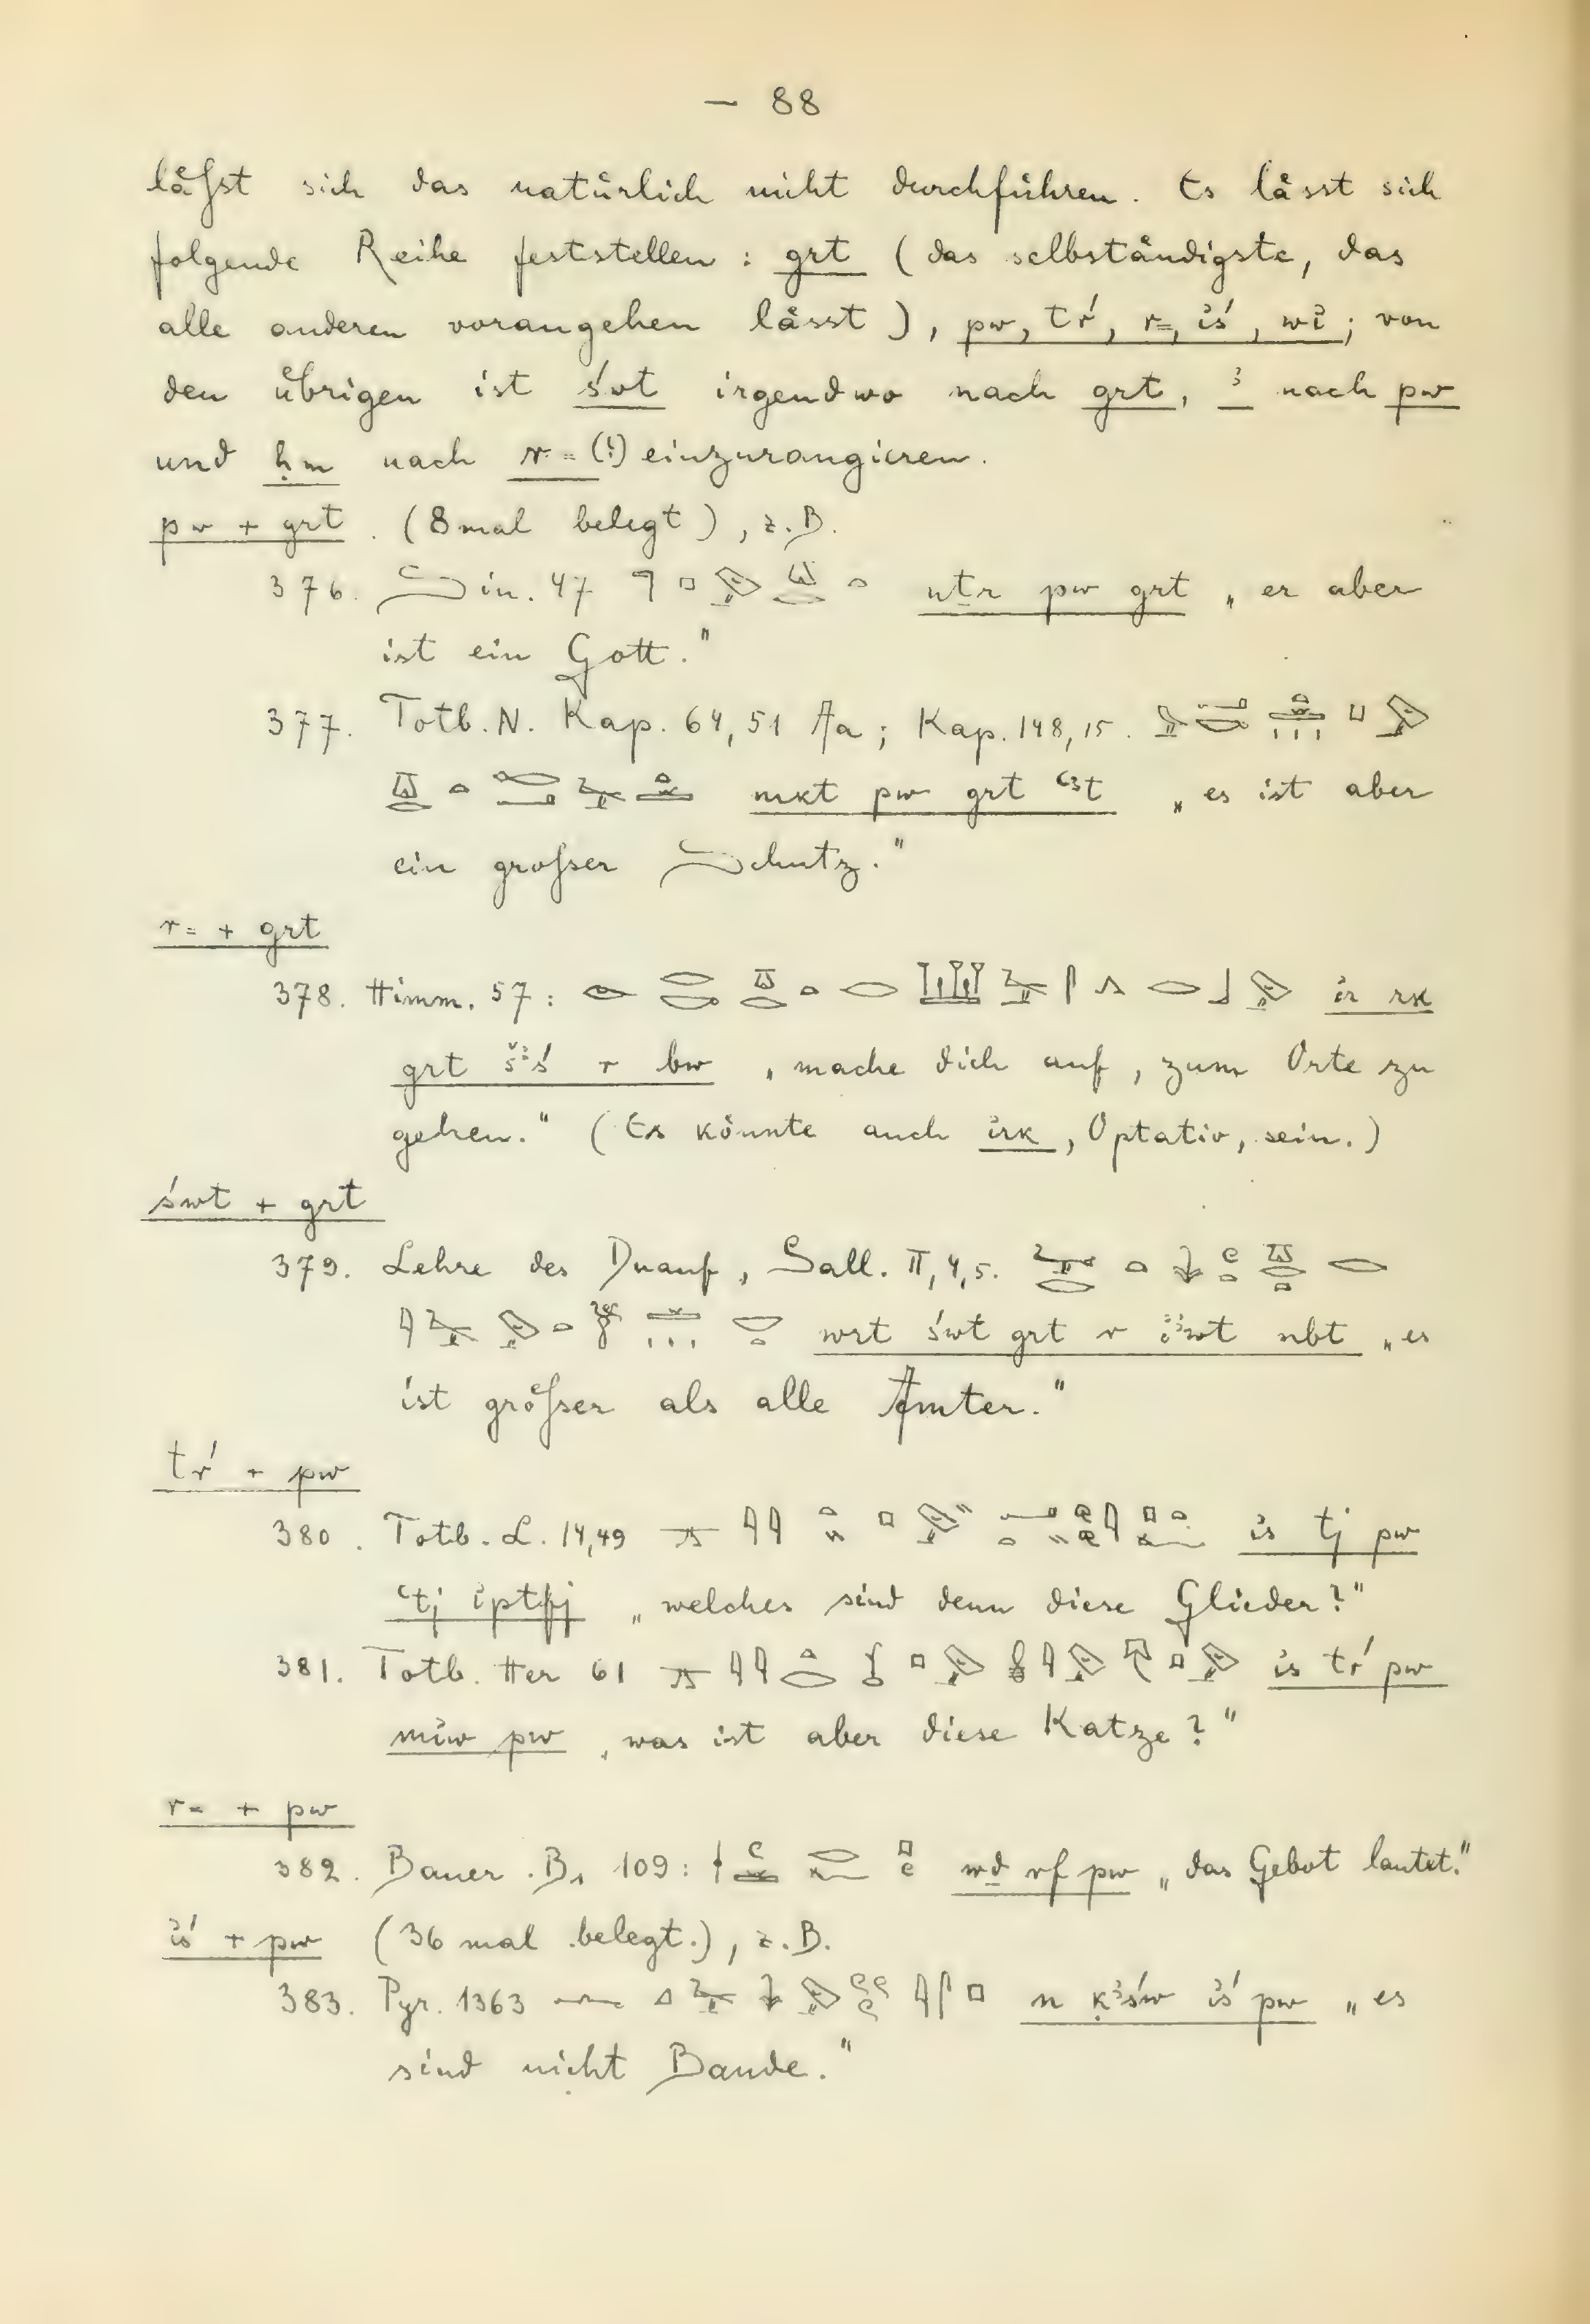 — 88
läſst sich das natürlich nicht durchführen. Es lässt sich
folgende Reihe feststellen : grt (das selbständigste, das
alle anderen vorangehen lässt), pw, tŕ, r=, ỉś, wỉ; von
den übrigen ist św̓t irgendwo nach grt, ꜣ nach pw
und ḥm nach r= (!) einzurangieren.
pw + grt . (8mal belegt), z.B.
376. Sin. 47 nṯr pw grt „er aber
ist ein Gott."
377. Totb. N. Kap. 64,51 Aa; Kap. 148,15.
mkt pw grt ꜥꜣt „es ist aber
ein groſser Schutz."
r= + grt
378. Himm. 57 : ỉr rk
grt šꜣś r bw „mache dich auf, zum Orte zu
gehen." (Es könnte auch ỉrk, Optativ, sein.)
śwt + grt
379. Lehre des Duauf, Sall. II,4,5.
wrt śwt grt r ỉꜣwt nbt „es
ist gröſser als alle Ämter."
tŕ + pw
380. Totb. L. 14,49 ỉs tj pw
ꜥtj ỉptfj „welches sind denn diese Glieder?"
381. Totb. Her 61 ỉs tŕ pw
mỉw pw „was ist aber diese Katze?"
r= + pw
382. Bauer B₁ 109 : wḏ rf pw „das Gebot lautet."
ỉś + pw (36 mal belegt.), z.B.
383. Pyr. 1363 n ḳꜣśw ỉś pw „es
sind nicht Bande."